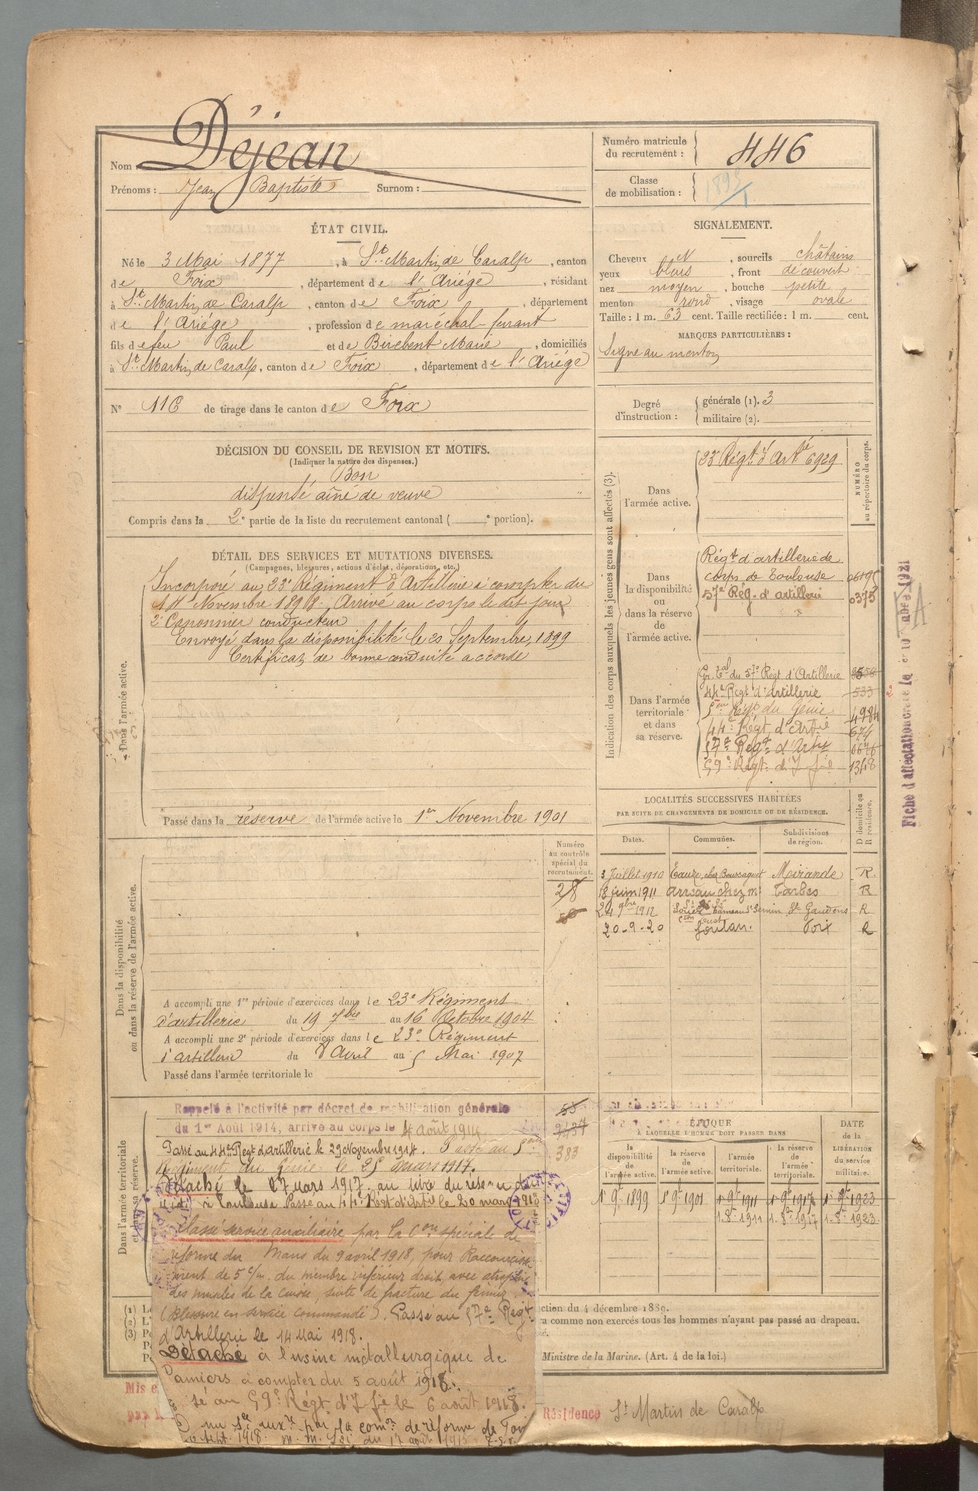 Nom Déjean
Prénoms : Jean Baptiste Surnom :
Numéro matricule
du recrutement : 446
Classe
de mobilisation :
ÉTAT CIVIL.
Né le 3 Mai 1877, à St. Martin de Caralp, canton
de Foix, département de l'Ariége, résidant
à St. Martin de Caralp, canton de Foix, département
de l'Ariége, profession de maréchal-ferrant
fils de feu Paul et de Birebent Marie, domiciliés
à St. Martin de Caralp, canton de Foix, département de l'Ariége
N° 116 de tirage dans le canton de Foix
SIGNALEMENT.
Cheveux, sourcils châtains
yeux bleus, front découvert
nez moyen, bouche petite
menton rond, visage ovale
Taille : 1 m. 63 cent. Taille rectifiée : 1 m. cent.
MARQUES PARTICULIÈRES :
Signe au menton
Degré
d'instruction :
générale (1). 3
militaire (2).
DÉCISION DU CONSEIL DE REVISION ET MOTIFS.
(Indiquer la nature des dispenses.)
Bon
dispensé aîné de veuve
Compris dans la 2e partie de la liste du recrutement cantonal ( e portion).
DÉTAIL DES SERVICES ET MUTATIONS DIVERSES.
(Campagnes, blessures, actions d'éclat, décorations, etc.)
Dans l'armée active.
Incorporé au 23e Régiment d'Artillerie à compter du
14 Novembre 1898. Arrivé au corps le dit jour
2e Canonnier conducteur
Envoyé dans la disponibilité le Septembre 1899
Certificat de bonne conduite accordé
Passé dans la réserve de l'armée active le 1er Novembre 1901
Indication des corps auxquels les jeunes gens sont affectés (3).
NUMÉRO
au répertoire du corps.
Dans
l'armée active.
23 Régt d'Artie 6929
Dans
la disponibilité
ou
dans la réserve
de
l'armée active.
Régt d'artillerie de
corps de Toulouse
57e Rég. d'artillerie 0373
Dans l'armée
territoriale
et dans
sa réserve.
Gr. tal du 57e Regt d'Artillerie
44e Regt d'Artillerie 533
Regt du Génie 4984
44e Régt d'Artie 674
57e Regt d'Artie
59e Régt d'Ife 1348
Fiche d'affectation
LOCALITÉS SUCCESSIVES HABITÉES
PAR SUITE DE CHANGEMENTS DE DOMICILE OU DE RÉSIDENCE.
Dates. Communes. Subdivisions
de région. D domicile ou
R résidence.
3 Juillet 1910 Eauze, chez Mirande R
13 Juin 1911 Arreau chez Tarbes R
1912 St Gaudens R
20-9-20 Foix R
Numéro
au contrôle
spécial du
recrutement.
28
383
Dans la disponibilité
ou dans la réserve de l'armée active.
A accompli une 1re période d'exercices dans le 23e Régiment
d'artillerie du 19 7bre au 16 Octobre 1904
A accompli une 2e période d'exercices dans le 23e Régiment
d'artillerie du 8 Avril au 5 Mai 1907
Passé dans l'armée territoriale le
Dans l'armée territoriale
et sa réserve.
Rappelé à l'activité par décret de mobilisation générale
du 1er Août 1914, arrivé au corps le 4 août 1914.
Passé au 44e Regt d'artillerie le 29 Novembre 1914. Passé au 5e
Régiment du Génie le 25 mars 1917.
Détaché le 27 mars 1917, au titre du
à Toulouse Passé au 44e Regt d'Artie le 20 mars 1918
Classé service auxiliaire par la Con spéciale de
réforme du Mans du 9 avril 1918, pour Raccourcisse-
ment de 5 c/m. du membre inférieur droit, avec atrophie
des muscles de la cuisse, suite de fracture du fémur
(Blessure en service commandé). Passé au 57e Regt
d'Artillerie le 14 Mai 1918.
Détaché à l'usine métallurgique de
Pamiers à compter du 5 août 1918.
sé au 59e Régt d'Ife le 6 août 1918.
par la comn de réforme de Foix
ÉPOQUE
À LAQUELLE L'HOMME DOIT PASSER DANS
la
disponibilité
de
l'armée active.
la réserve
de
l'armée active.
l'armée
territoriale.
la réserve
de
l'armée
territoriale.
DATE
de la
LIBÉRATION
du service
militaire.
1er 9bre 1899 1er 9bre 1901 1er 9bre 1911 1er 9bre 1917 1er 9bre 1923
1. 8bre 1911 1. 8bre 1917 1. 8bre 1923
ction du 4 décembre 1889.
ra comme non exercés tous les hommes n'ayant pas passé au drapeau.
Ministre de la Marine. (Art. 4 de la loi.)
Résidence St Martin de Caralp